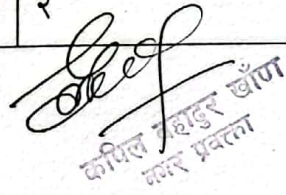 २
कपिल बहादुर खाँण
नगर प्रवक्ता